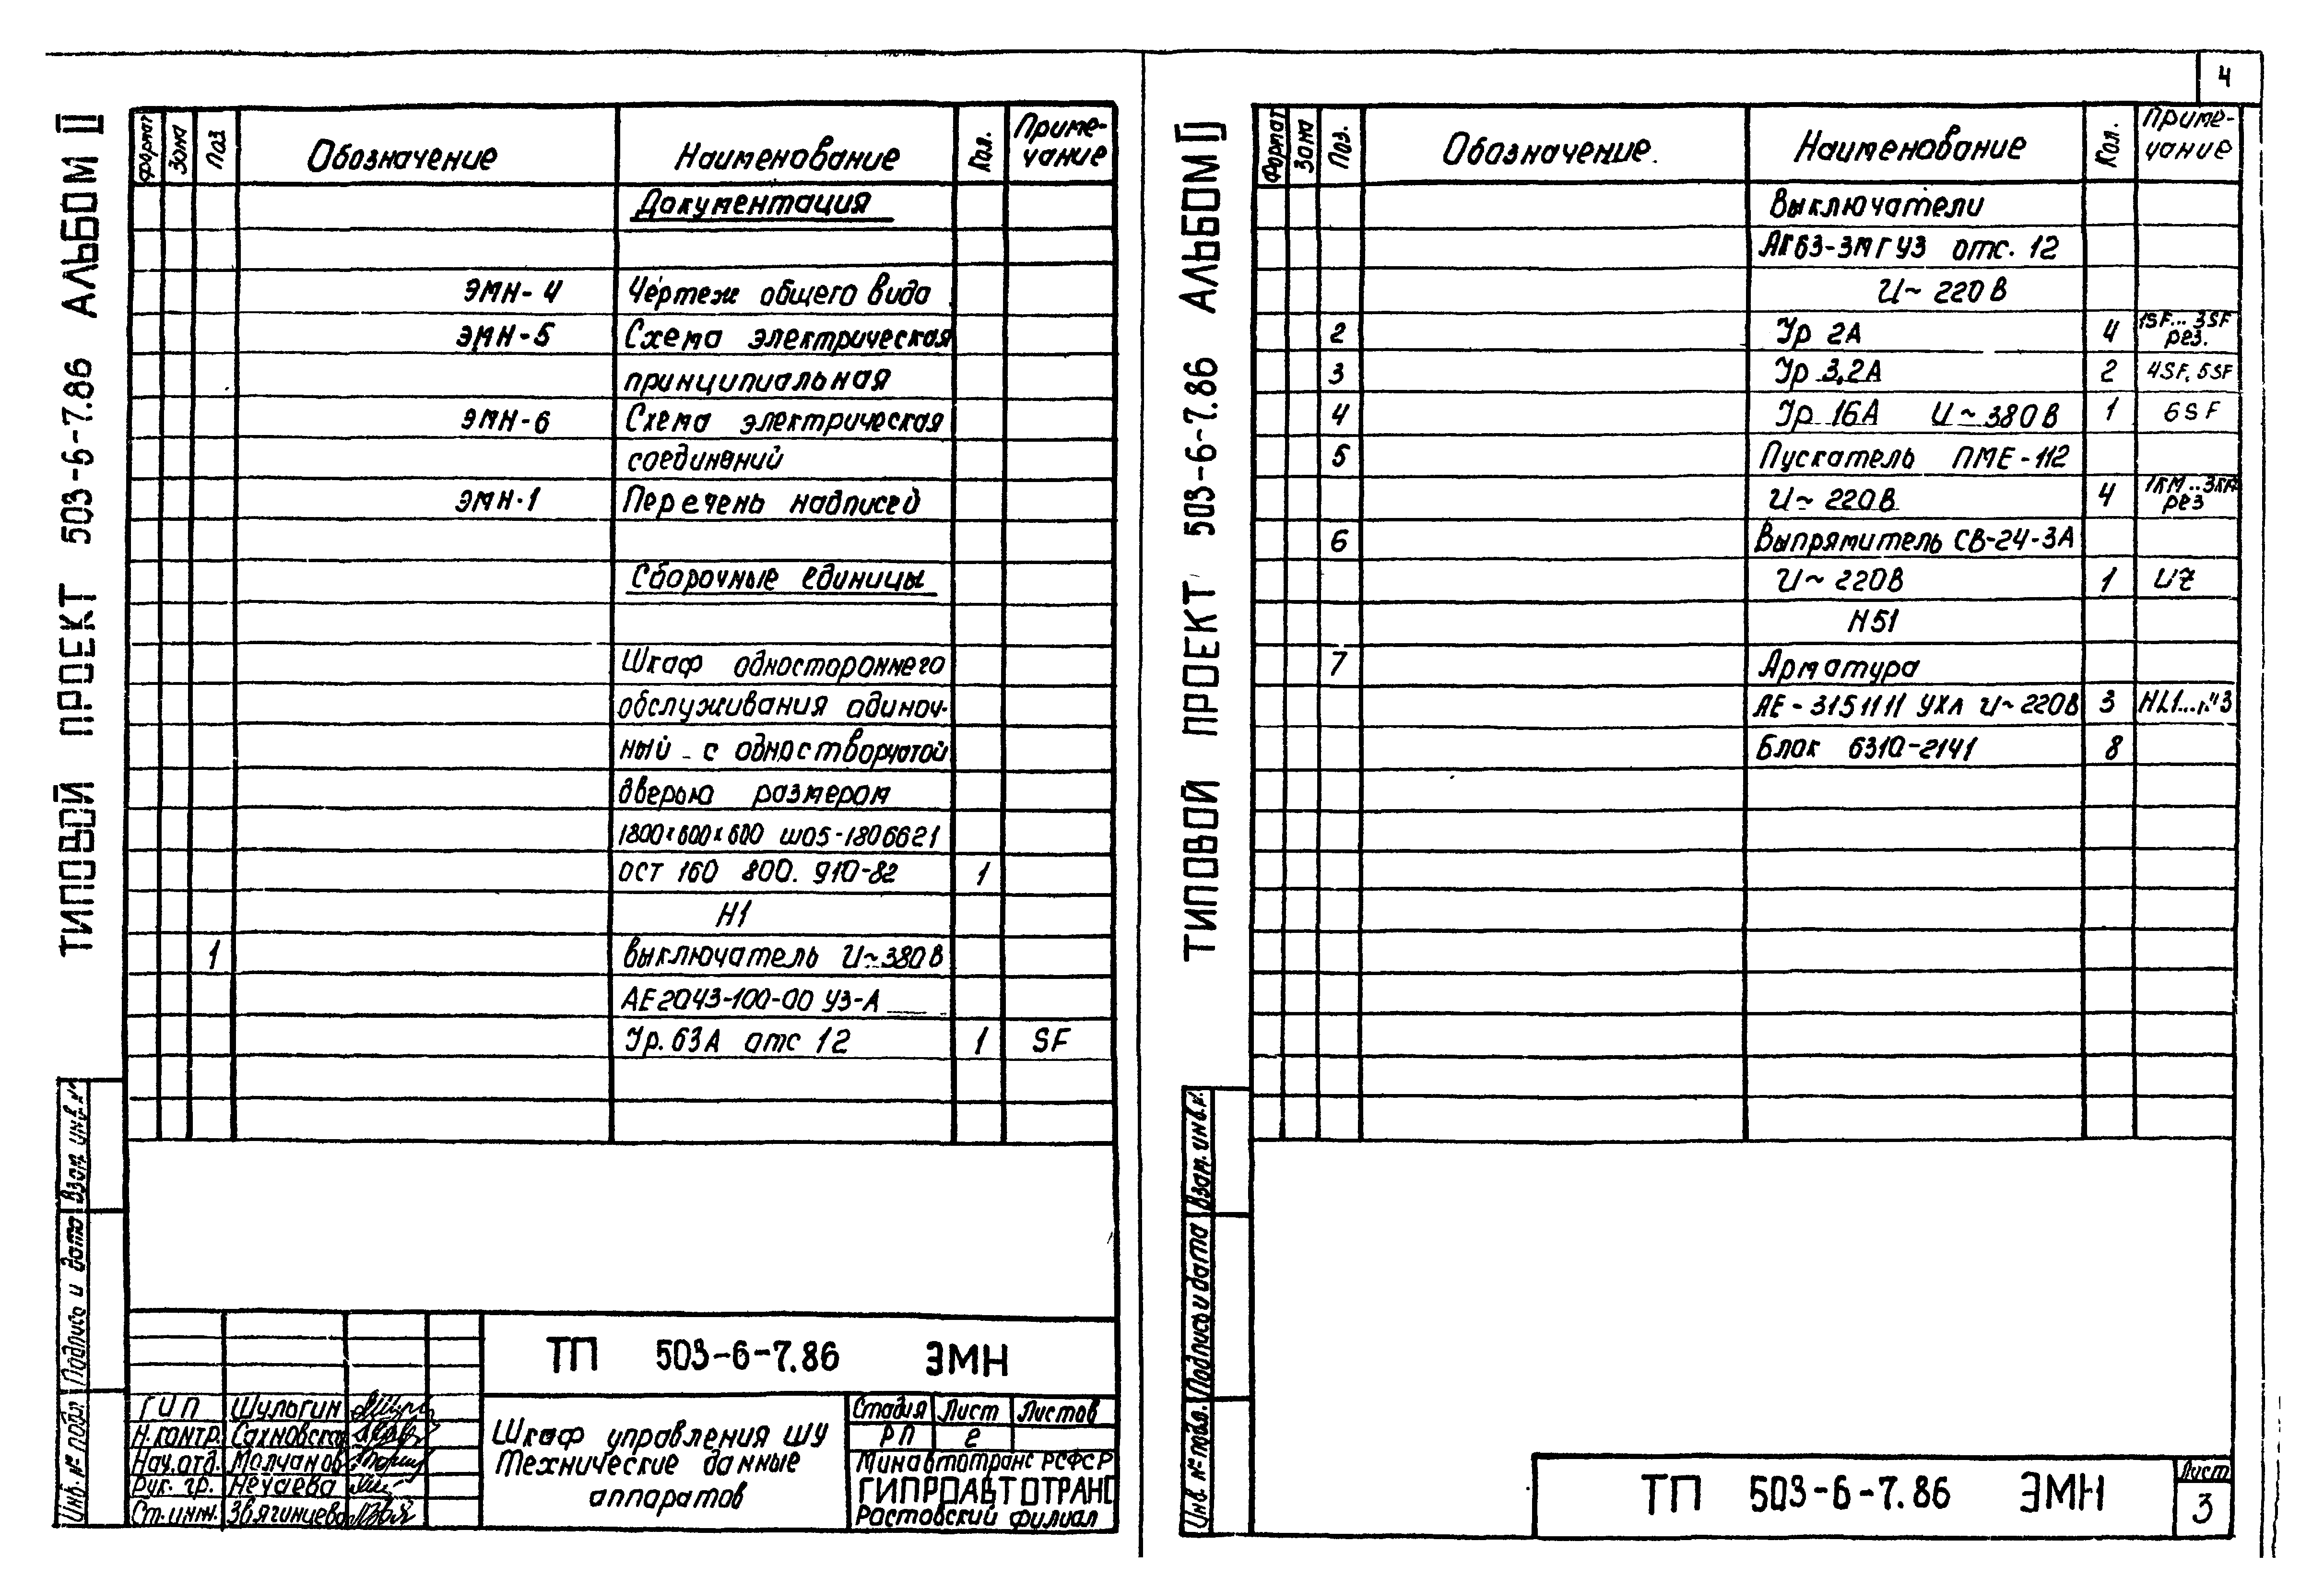 4
ТИПОВОЙ ПРОЕКТ 503-6-7.86 АЛЬБОМ II
Формат Зона Поз Обозначение Наименование Кол. Приме-
чание
Документация
ЭМН-4 Чертеж общего вида
ЭМН-5 Схема электрическая
принципиальная
ЭМН-6 Схема электрическая
соединений
ЭМН-1 Перечень надписей
Сборочные единицы
Шкаф одностороннего
обслуживания одиноч-
ный с одностворчатой
дверью размером
1800х600х600 Ш05-1806621
ОСТ 160 800. 910-82 1
Н1
1 Выключатель U~380В
АЕ2043-100-00 У3-А
Iр. 63А отс 12 1 SF
Взам. инв. №
Подпись и дата
Инв. № подл
ТП 503-6-7.86 ЭМН
ГИП Шульгин
Н.контр. Сахновская
Нач.отд. Молчанов
Рук. гр. Нечаева
Ст.инж. Звягинцева
Шкаф управления ШУ
Технические данные
аппаратов
Стадия Лист Листов
РП 2
Минавтотранс РСФСР
ГИПРОАВТОТРАНС
Ростовский филиал
ТИПОВОЙ ПРОЕКТ 503-6-7.86 АЛЬБОМ II
Формат Зона Поз. Обозначение. Наименование Кол. Приме-
чание
Выключатели
АК63-3МГУ3 отс. 12
U~ 220В
2 Iр 2А 4 1SF...3SF
рез.
3 Iр 3,2А 2 4SF, 5SF
4 Iр 16А U~380В 1 6SF
5 Пускатель ПМЕ-112
U~ 220В 4 1КМ..3КМ
рез
6 Выпрямитель СВ-24-3А
U~ 220В 1 UZ
Н51
7 Арматура
АЕ-3151111 УХЛ U~220В 3
Блок 6310-2141 8
Взам. инв.№.
Подпись и дата
Инв. № подл.
ТП 503-6-7.86 ЭМН
Лист
3